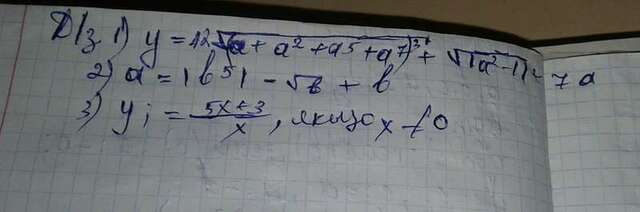 Д/з 1) y = 12√(a + a² + a⁵ + a⁷)³ + √|a² - 1| - 7a
2) a = |b5| - √b + b
3) y; = 5x+3/x, якщо x ≠ 0